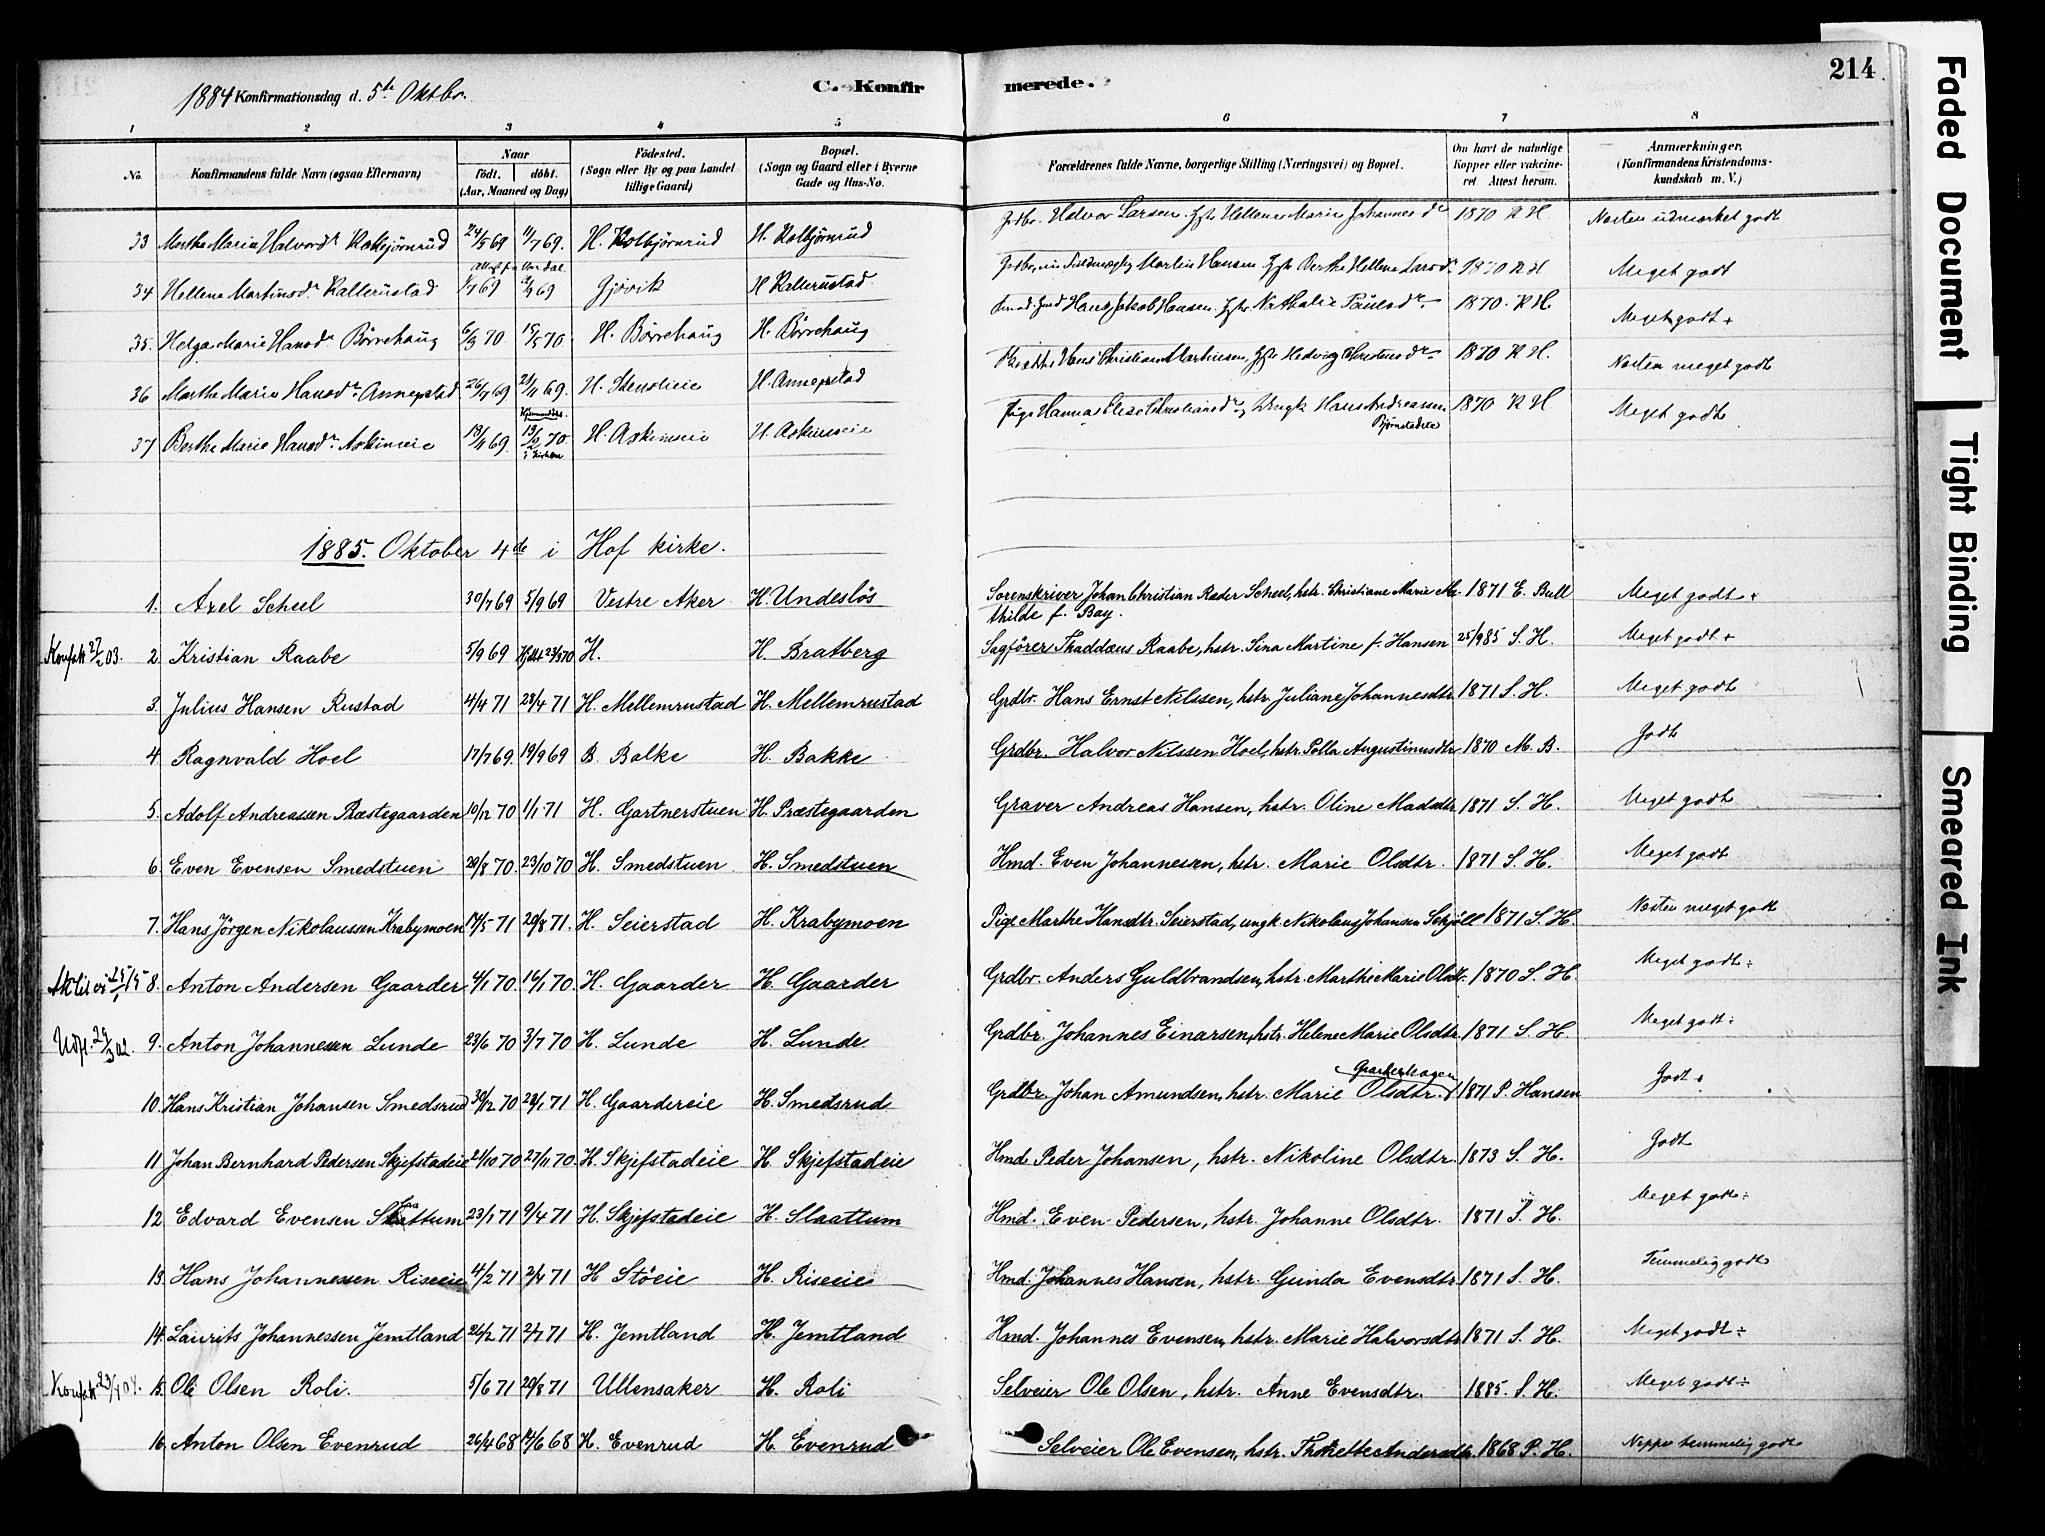 214
1884 Konfirmationsdag d. 5te Oktbr.
C. Konfirmerede.
1 2 3 4 5 6 7 8
No. Konfirmandens fulde Navn (ogsaa Efternavn) Naar födt. döbt. (Aar, Maaned og Dag) Födested. (Sogn eller By og paa Landet tillige Gaard) Bopæl. (Sogn og Gaard eller i Byerne Gade og Hus-No. Forældrenes fulde Navne, borgerlige Stilling (Næringsvei) og Bopæl. Om havt de naturlige Kopper eller vaccineret Attest herom. Anmærkninger. (Konfirmandens Kristendomskundskab m. V.)
33 Marthe Marie Halvorsdr. Kolbjørnrud 24/5 69 11/7 69. H. Kolbjørnrud H. Kolbjørnrud Grdbr. Halvor Larsen. Hstr. Hellene Marie Johannesdr 1870 R H. Næsten udmærket godt
34 Hellene Martinsdr. Kallerustad 1/7 69 69 Gjövik H Kallerustad Martin Hansen Hstr Berthe Hellene Larsdr. 1870 R H. Meget godt
35. Helga Marie Hansdr. Börrehaug 6/3 70. 15/5 70 H. Börrehaug H. Börrehaug Hans Jakob Hansen. Hstr. Nathalie Paulsdr. 1870. R H. Meget godt +
36 Marthe Marie Hansdr. Annexstad 26/9 69 21/11 69. H. H. Annexstad Hans Christian Martinsen, Hstr Hedvig 1870 R H. Næsten meget godt
37 Berthe Marie Hansdr. Askimeie 18/11 69. 13/2 70. i Kirken H. Askimeie H. Askimeie Pige Hanna Elise Christiansdr. og Ungk Hans Andreassen 1870 R H Meget godt
1885. Oktober 4de i Hof kirke.
1. Axel Scheel 30/7 69 5/9 69 Vestre Aker H. Undeslös Sorenskriver Johan Christian Ræder Scheel, hstr. Christiane Marie Mathilde f. Bay. 1871 E. Bull Meget godt +
Konfatt 27/2 03. 2. Kristian Raabe 5/9 69 Hjdbt 23/5 70 H. H. Bratberg Sagförer Thaddæus Raabe, hstr. Sina Martine f. Hansen 25/9 85 S. H. Meget godt +
3. Julius Hansen Rustad 4/4 71 23/4 71 H. Mellemrustad H. Mellemrustad Grdbr. Hans Ernst Nilssen, hstr. Juliane Johannesdtr. 1871 S. H. Meget godt
4. Ragnvald Hoel 17/7 69. 19/9 69 B. Balke H. Bakke Grdbr. Halvor Nilssen Hoel, hstr. Polla Augustinusdtr 1870 M. B. Godt
5. Adolf Andreassen Præstegaarden 10/12 70 1/1 71 H. Gartnerstuen H. Præstegaarden Graver Andreas Hansen, hstr. Oline Madsdtr 1871 S. H. Meget godt
6. Even Evensen Smedstuen 29/8 70. 23/10 70 H. Smedstuen H. Smedstuen Hmd. Even Johannesen, hstr. Marie Olsdtr. 1871 S. H. Meget godt
7. Hans Jörgen Nikolaussen Krabymoen 17/5 71 20/8 71. H. Seierstad H. Krabymoen Pige Marthe Hansdtr. Seierstad, ungk Nikolaus Johansen Schjöll 1871 S. H. Næsten meget godt
8. Anton Andersen Gaarder 4/1 70. 16/1 70. H. Gaarder H. Gaarder Grdbr. Anders Guldbrandsen, hstr. Marthe Marie Olsdtr. 1870 S. H. Meget godt ÷
Udfl. 29/3 02. 9. Anton Johannessen Lunde 23/6 70 3/7 70 H. Lunde H. Lunde Grdbr. Johannes Einarsen, hstr. Helene Marie Olsdtr. 1871 S. H. Meget godt ÷
10. Hans Kristian Johansen Smedsrud 30/12 70 22/1 71 H. Gaardereie H. Smedsrud Grdbr. Johan Amundsen, hstr. Marie Olsdtr. 1871 P. Hansen Godt +
11 Johan Bernhard Pedersen Skjefstadeie 21/10 70 27/11 70. H. Skjefstadeie H. Skjefstadeie Hmd. Peder Johansen, hstr. Nikoline Olsdtr. 1873 S. H. Godt
12 Edvard Evensen Slaattum 23/1 71 9/4 71 H. Skjefstadeie H. Slaattum Hmd. Even Pedersen, hstr. Johanne Olsdtr. 1871 S. H. Meget godt ÷
13. Hans Johannessen Riseeie 4/2 71 2/4 71 H Stöeie H. Riseeie Hmd. Johannes Hansen, hstr. Gunda Evensdtr. 1871 S. H. Temmelig godt
14. Laurits Johannessen Jemtland 26/2 71 2/7 71 H. Jemtland H. Jemtland Hmd. Johannes Evensen, hstr. Marie Halvorsdtr 1871 S. H. Meget godt ÷
15. Ole Olsen Roli. 5/6 71 20/8 71 Ullensaker H. Roli Selveier Ole Olsen, hstr. Anne Evensdtr. 1885. S. H. Meget godt ÷
16. Anton Olsen Evenrud 26/4 68 14/6 68 H. Evenrud H. Evenrud Selveier Ole Evensen, hstr. Thorette Andersdtr. 1868 P. H. Neppe temmelig godt
Faded Document
Tight Binding
Smeared Ink